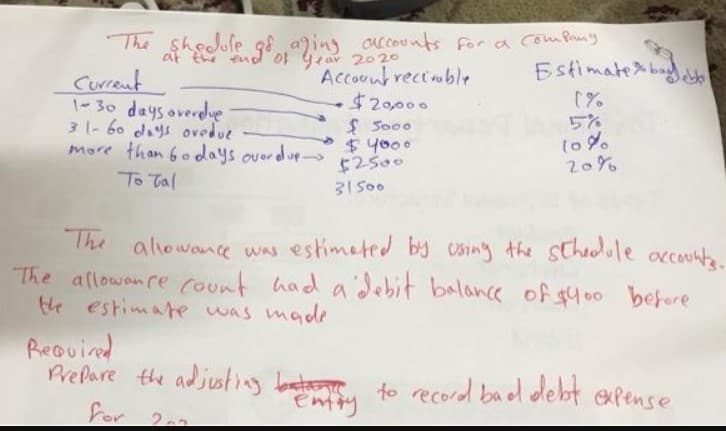 The shedule of aging accounts for a company
at the end of year 2020
Current Account recivable Estimate % bad debt
1-30 days overdue $20,000 1%
31-60 days ovedue $ 5000 5%
more than 60 days overdue $ 4000 10%
$2500 20%
ToTal 31500
The allowance was estimated by using the schedule accounts.
The allowance count had a debit balance of $400 before
the estimate was made
Required
PrePare the adjusting entry to record bad debt expense
for